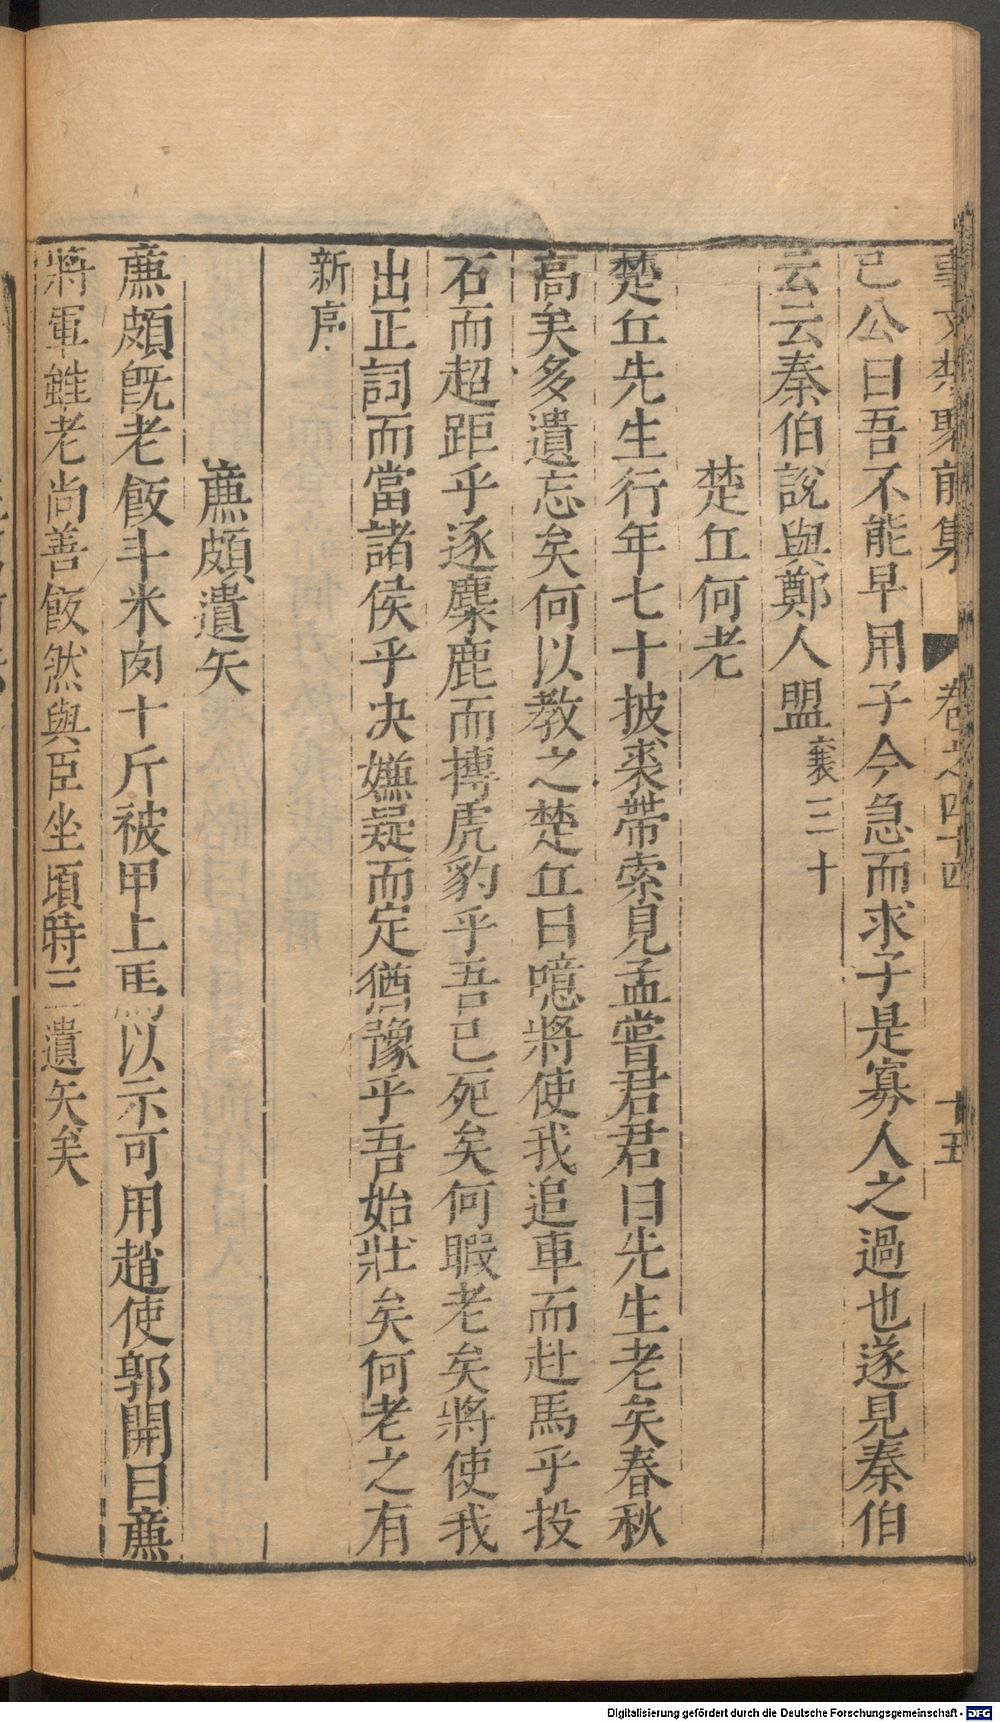 事文類聚前集 卷之四十四 十五
已公曰吾不能早用子今急而求子是寡人之過也遂見秦伯
云云秦伯說與鄭人盟襄三十
楚丘何老
楚丘先生行年七十披裘帶索見孟嘗君君曰先生老矣春秋
高矣多遺忘矣何以教之楚丘曰噫將使我追車而赴馬乎投
石而超距乎逐麋鹿而搏虎豹乎吾已死矣何暇老矣將使我
出正詞而當諸侯乎决嫌疑而定猶豫乎吾始壯矣何老之有
新序
廉頗遺矢
廉頗旣老飯斗米肉十斤被甲上馬以示可用趙使郭開曰廉
將軍雖老尚善飯然與臣坐頃時三遺矢矣
Digitalisierung gefördert durch die Deutsche Forschungsgemeinschaft - DFG